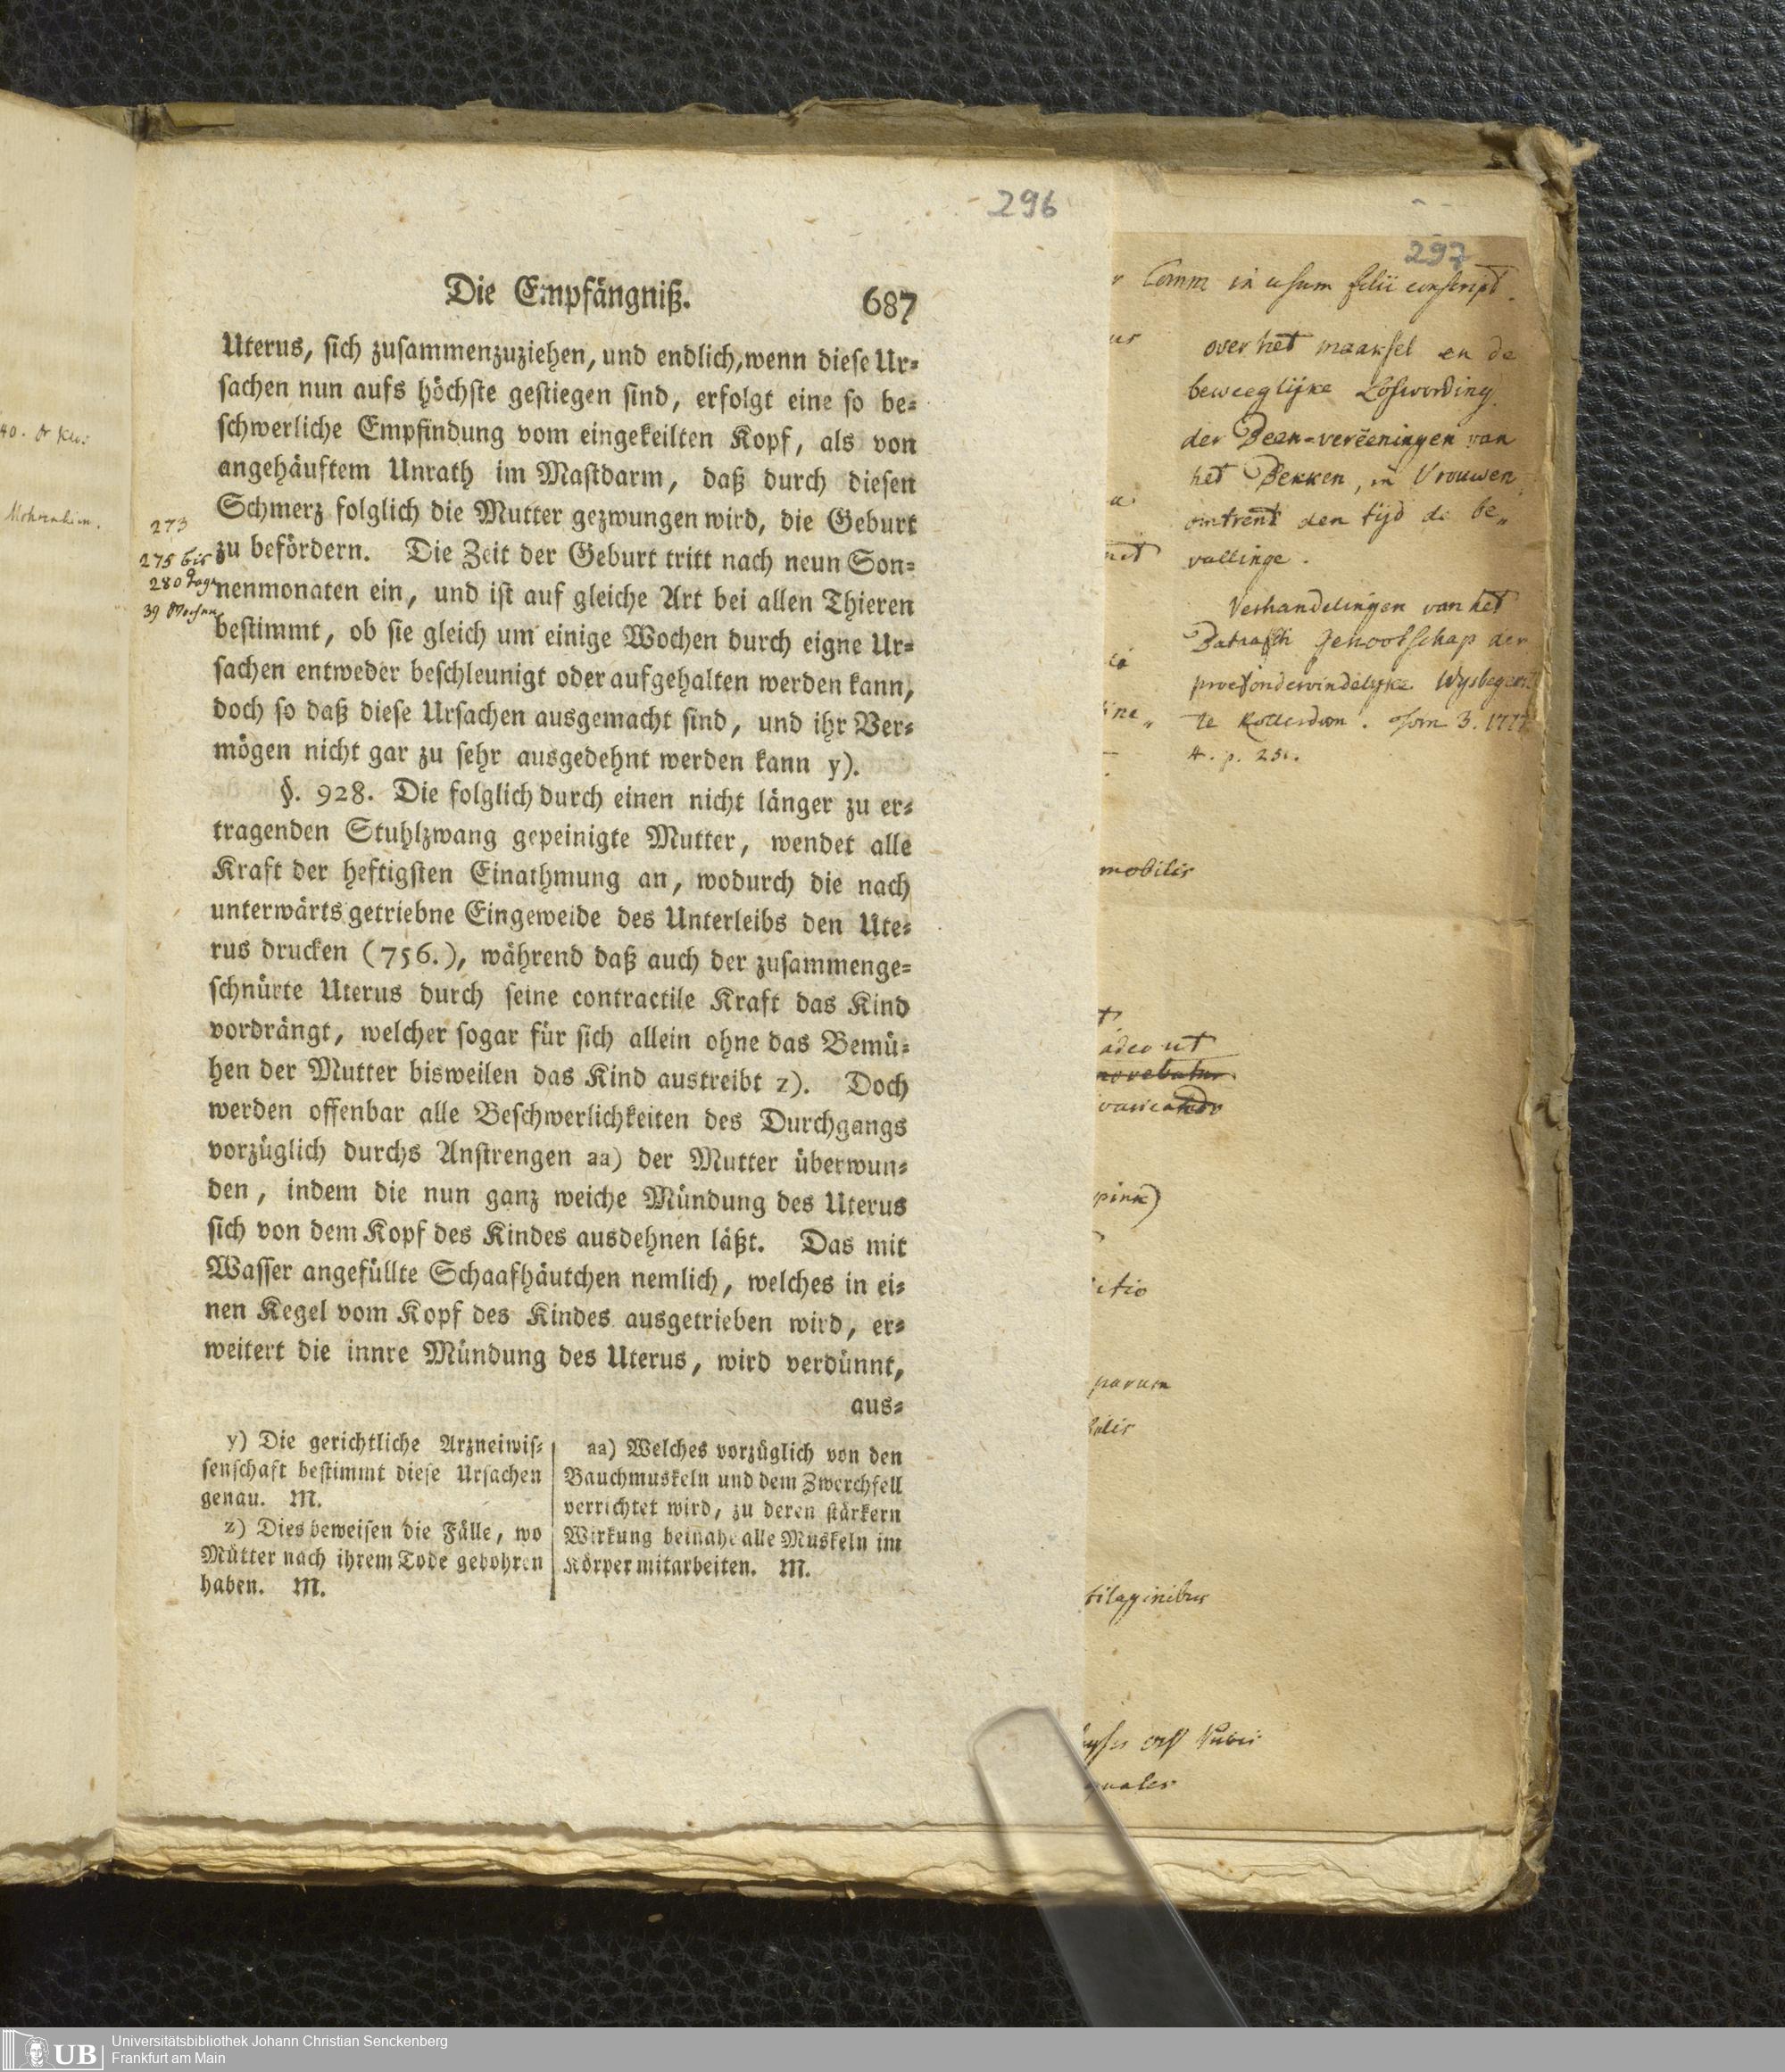 296
Die Empfängniß. 687
Uterus, sich zusammenzuziehen, und endlich, wenn diese Ur-
sachen nun aufs höchste gestiegen sind, erfolgt eine so be-
schwerliche Empfindung vom eingekeilten Kopf, als von
angehäuftem Unrath im Mastdarm, daß durch diesen
Schmerz folglich die Mutter gezwungen wird, die Geburt
zu befördern. Die Zeit der Geburt tritt nach neun Son-
nenmonaten ein, und ist auf gleiche Art bei allen Thieren
bestimmt, ob sie gleich um einige Wochen durch eigne Ur-
sachen entweder beschleunigt oder aufgehalten werden kann,
doch so daß diese Ursachen ausgemacht sind, und ihr Ver-
mögen nicht gar zu sehr ausgedehnt werden kann y).
§. 928. Die folglich durch einen nicht länger zu er-
tragenden Stuhlzwang gepeinigte Mutter, wendet alle
Kraft der heftigsten Einathmung an, wodurch die nach
unterwärts getriebne Eingeweide des Unterleibs den Ute-
rus drucken (756.), während daß auch der zusammenge-
schnürte Uterus durch seine contractile Kraft das Kind
vordrängt, welcher sogar für sich allein ohne das Bemü-
hen der Mutter bisweilen das Kind austreibt z). Doch
werden offenbar alle Beschwerlichkeiten des Durchgangs
vorzüglich durchs Anstrengen aa) der Mutter überwun-
den, indem die nun ganz weiche Mündung des Uterus
sich von dem Kopf des Kindes ausdehnen läßt. Das mit
Wasser angefüllte Schaafhäutchen nemlich, welches in ei-
nen Kegel vom Kopf des Kindes ausgetrieben wird, er-
weitert die innre Mündung des Uterus, wird verdünnt,
aus-
y) Die gerichtliche Arzneiwis-
senschaft bestimmt diese Ursachen
genau. M.
z) Dies beweisen die Fälle, wo
Mütter nach ihrem Tode gebohren
haben. M.
aa) Welches vorzüglich von den
Bauchmuskeln und dem Zwerchfell
verrichtet wird, zu deren stärkern
Wirkung beinahe alle Muskeln im
Körper mitarbeiten. M.
273
275 bis
280 Tage
39 Wochen
297
Comm in usum filii conscript.
over het maaksel en de
beweeglijke Loswording
der Been-vereeningen van
het Bekken, in Vrouwen
omtrent den tijd de be„
vallinge.
Verhandelingen van het
Genootschap der
proefondervindelijke
te Rotterdam. Tom 3. 1777
4. p. 251.
mobilis
adeo ut
parum
Universitätsbibliothek Johann Christian Senckenberg
Frankfurt am Main
UB